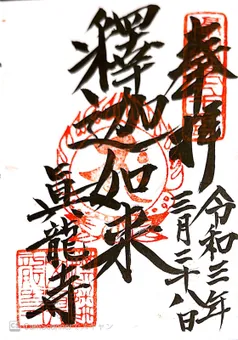 奉拝
令和三年
三月二十八日
釋迦如来
眞龍寺